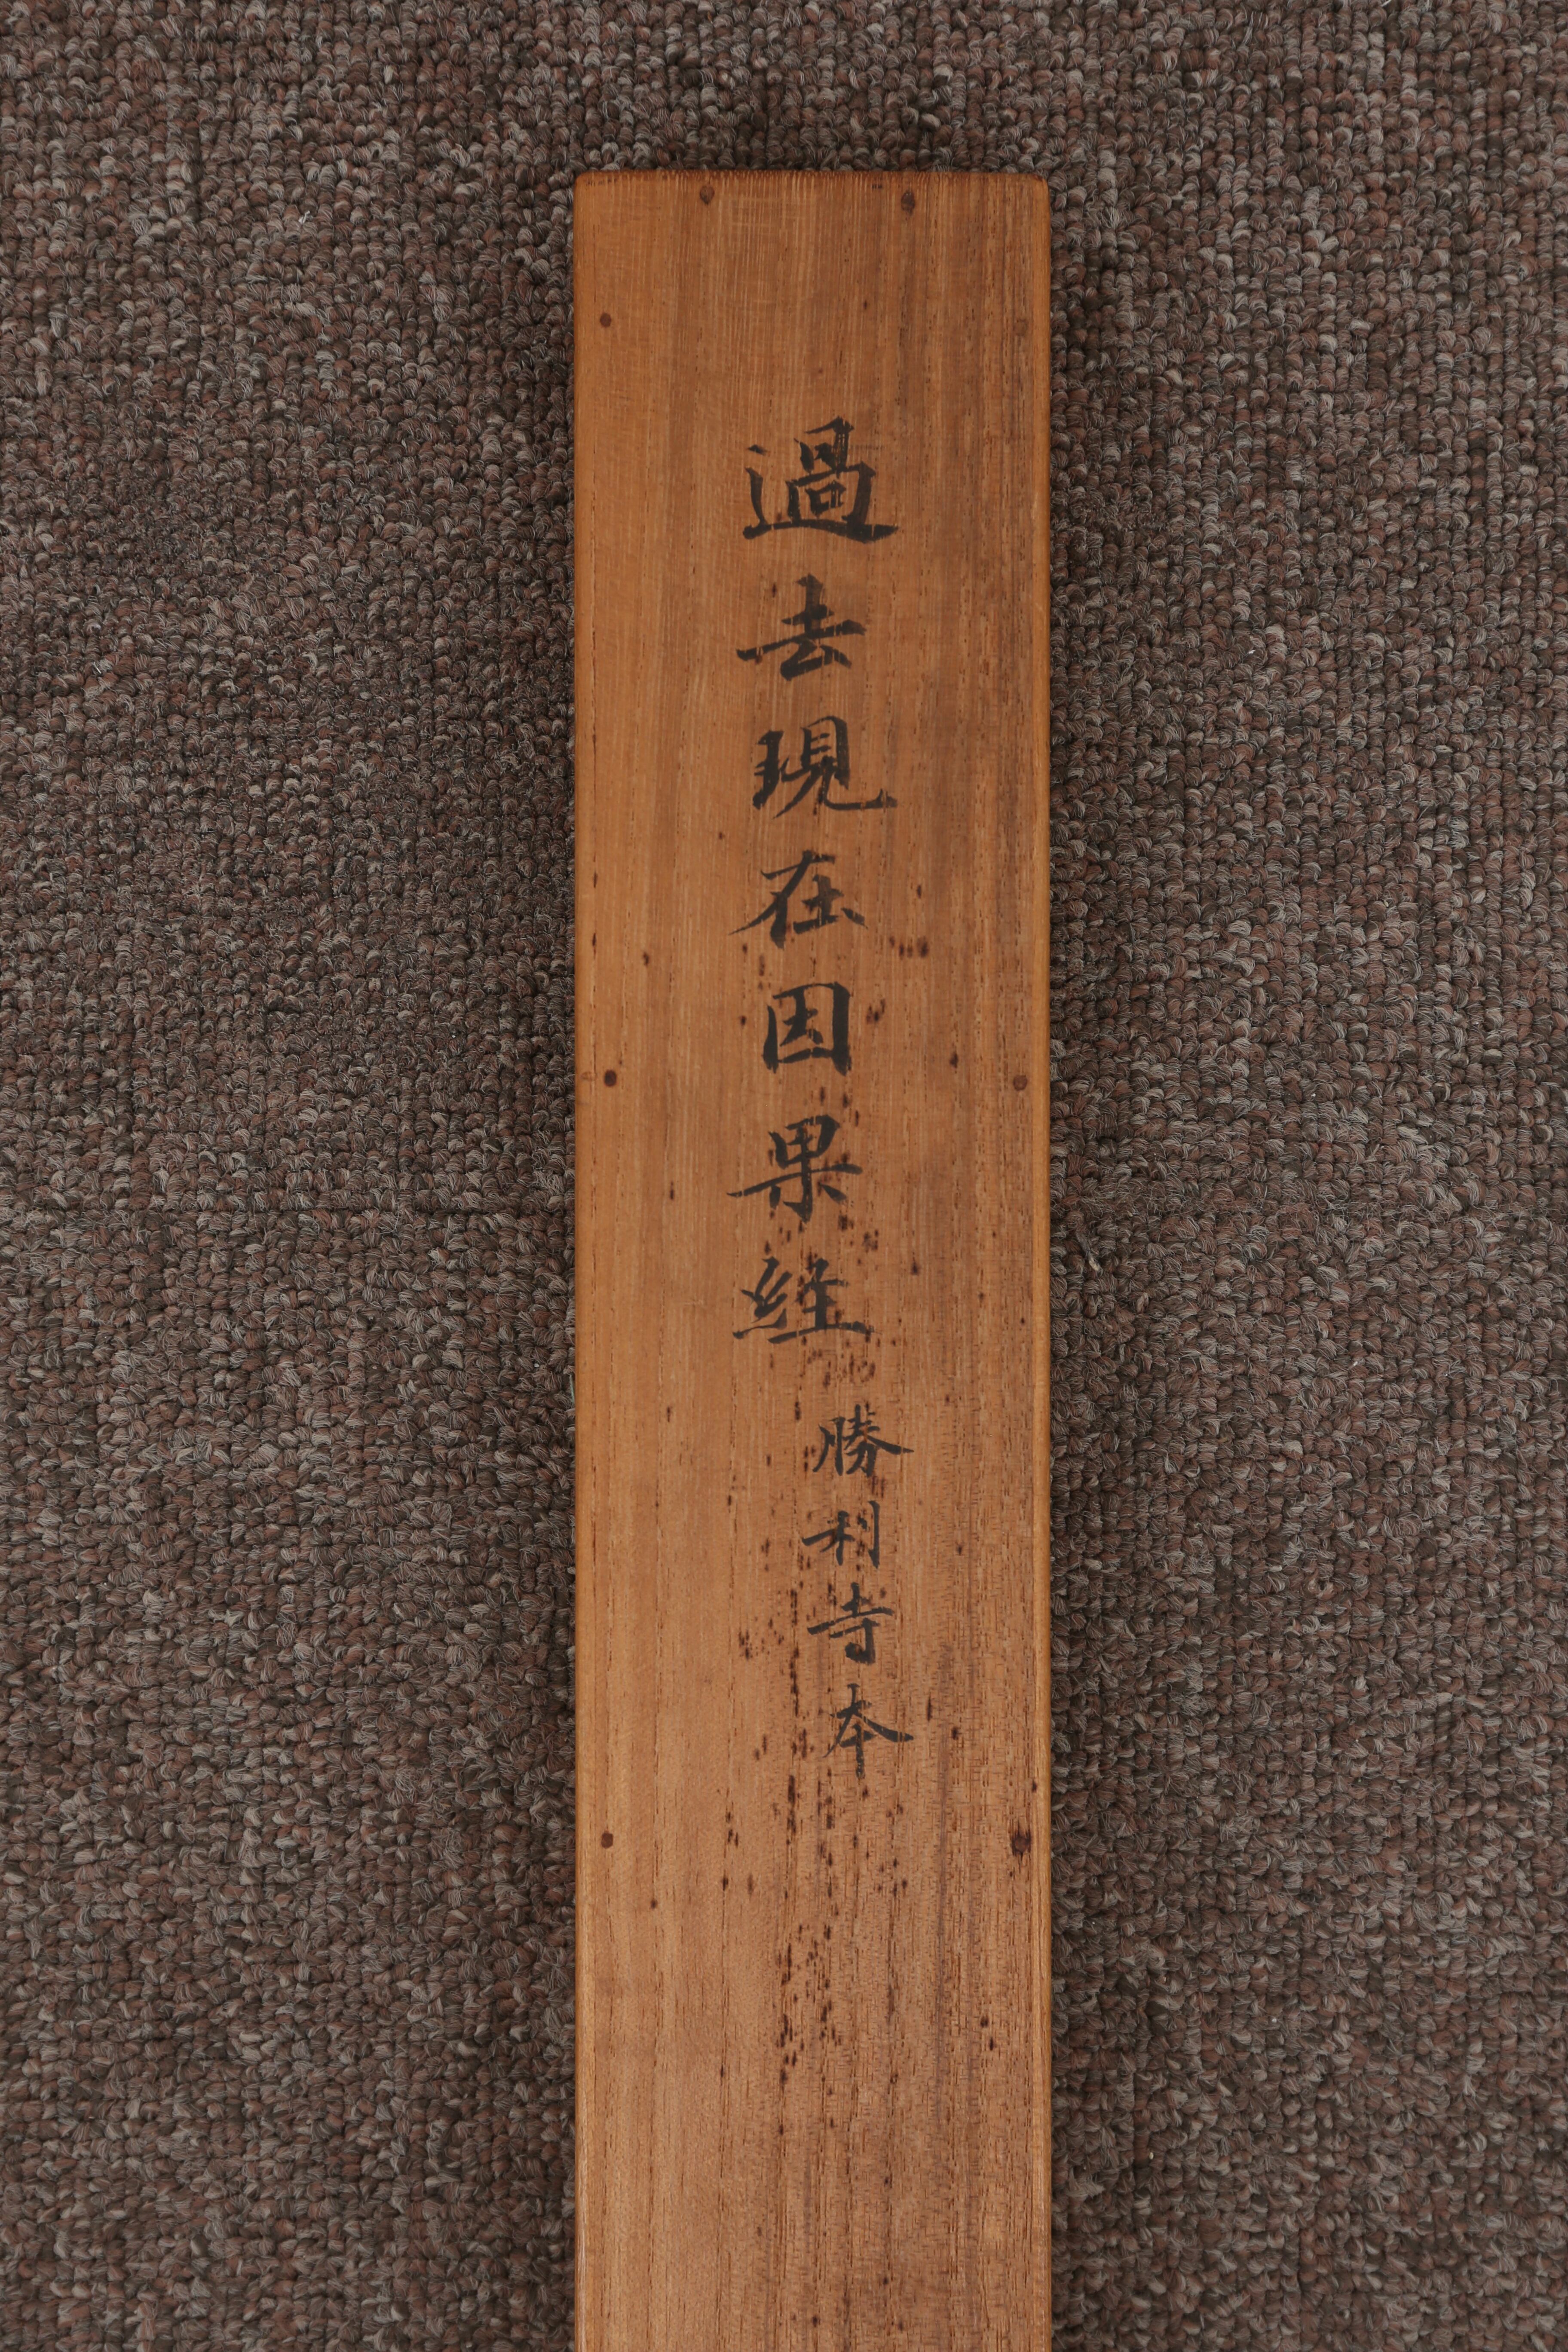 過去現在因果経
勝利寺本